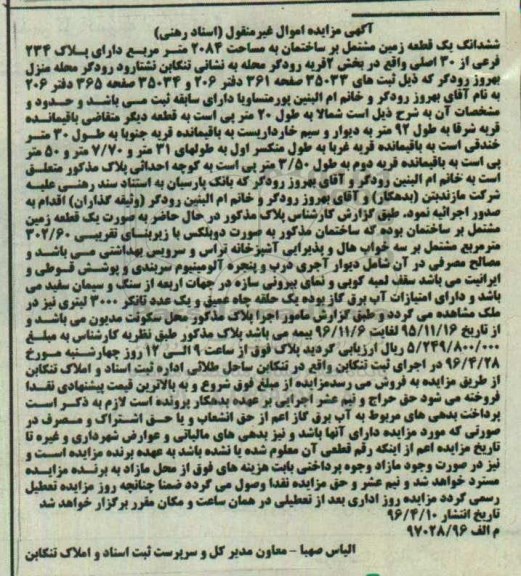 آگهی مزایده اموال غیرمنقول (اسناد رهنی)
ششدانگ یک قطعه زمین مشتمل بر ساختمان به مساحت ۲۰۸۴ متر مربع دارای پلاک ۲۳۴
فرعی از ۳۰ اصلی واقع در بخش ۲قریه رودگر محله به نشانی تنکابن نشتارود رودگر محله منزل
بهروز رودگر که ذیل ثبت های ۳۵۰۳۳ صفحه ۳۶۱ دفتر ۲۰۶ و ۳۵۰۳۴ صفحه ۳۶۵ دفتر ۲۰۶
به نام آقای بهروز رودگر و خانم ام البنین پورمتساویا دارای سابقه ثبت می باشد و حدود و
مشخصات آن به شرح ذیل است شمالا به طول ۲۰ متر پی است به قطعه دیگر متقاضی باقیمانده
قریه شرقا به طول ۹۲ متر به دیوار و سیم خارداریست به باقیمانده قریه جنوبا به طول ۳۰ متر
خندقی است به باقیمانده قریه غربا به طول منکسر اول به طولهای ۳۱ متر و ۷/۷۰ متر و ۵۰ متر
پی است به باقیمانده قریه دوم به طول ۳/۵۰ متر پی است به کوچه احداثی پلاک مذکور متعلق
است به خانم ام البنین رودگر و آقای بهروز رودگر که بانک پارسیان به استناد سند رهنی علیه
شرکت مازندبتن (بدهکار) و آقای بهروز رودگر و خانم ام البنین رودگر (وثیقه گذاران) اقدام به
صدور اجرائیه نمود. طبق گزارش کارشناس پلاک مذکور در حال حاضر به صورت یک قطعه زمین
مشتمل بر ساختمان بوده که ساختمان مذکور به صورت دوبلکس با زیربنای تقریبی ۳۰۲/۶۰
مترمربع مشتمل بر سه خواب هال و پذیرایی آشپزخانه تراس و سرویس بهداشتی می باشد و
مصالح مصرفی در آن شامل دیوار آجری درب و پنجره آلومینیوم سربندی و پوشش قوطی و
ایرانیت می باشد سقف لمبه کوبی و نمای بیرونی سازه در جهات اربعه از سنگ و سیمان سفید می
باشد و دارای امتیازات آب برق گاز بوده یک حلقه چاه عمیق و یک عدد تانکر ۳۰۰۰ لیتری نیز در
ملک مشاهده می گردد و طبق گزارش مامور اجرا پلاک مذکور محل سکونت مدیون می باشد و
از تاریخ ۹۵/۱۱/۱۶ لغایت ۹۶/۱۱/۶ بیمه می باشد پلاک مذکور طبق نظریه کارشناس به مبلغ
۵/۲۴۹/۸۰۰/۰۰۰ ریال ارزیابی گردید پلاک فوق از ساعت ۹ الی ۱۲ روز چهارشنبه مورخ
۹۶/۴/۲۸ در اجرای ثبت تنکابن واقع در تنکابن ساحل طلائی اداره ثبت اسناد و املاک تنکابن
از طریق مزایده به فروش می رسدمزایده از مبلغ فوق شروع و به بالاترین قیمت پیشنهادی نقدا
فروخته می شود حق حراج و نیم عشر اجرایی بر عهده بدهکار پرونده است لازم به ذکر است
پرداخت بدهی های مربوط به آب برق گاز اعم از حق انشعاب و یا حق اشتراک و مصرف در
صورتی که مورد مزایده دارای آنها باشد و نیز بدهی های مالیاتی و عوارض شهرداری و غیره تا
تاریخ مزایده اعم از اینکه رقم قطعی آن معلوم شده یا نشده باشد به عهده برنده مزایده است و
نیز در صورت وجود مازاد وجوه پرداختی بابت هزینه های فوق از محل مازاد به برنده مزایده
مسترد خواهد شد و نیم عشر و حق مزایده نقدا وصول می گردد ضمنا چنانچه روز مزایده تعطیل
رسمی گردد مزایده روز اداری بعد از تعطیلی در همان ساعت و مکان مقرر برگزار خواهد شد
تاریخ انتشار ۹۶/۴/۱۰
م الف ۹۷۰۲۸/۹۶
الیاس صهبا - معاون مدیر کل و سرپرست ثبت اسناد و املاک تنکابن